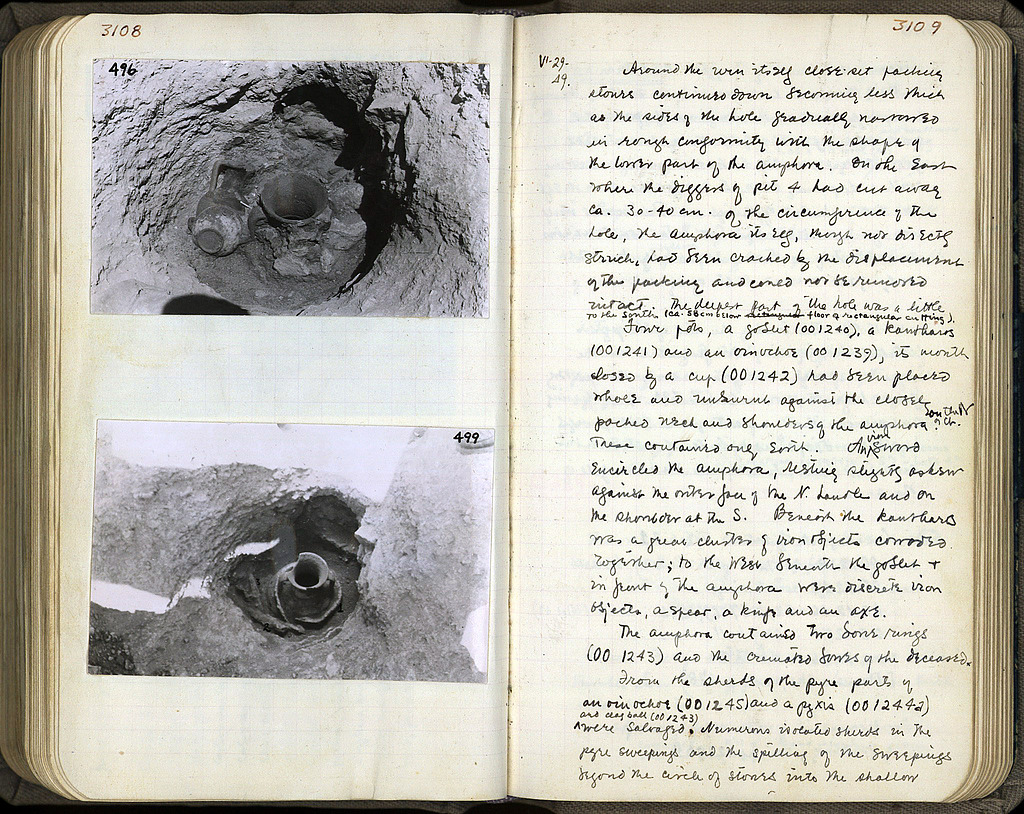 3108
496
499
3109
VI-29-
49.
Around the urn itself close set packing
stones continued down becoming less thick
as the sides of the hole gradually narrowed
in rough conformity with the shape of
the lower part of the amphora. On the East
where the diggers of pit 4 had cut away
ca. 30-40 cm. of the circumference of the
hole, the amphora itself, though not directly
struck, had been cracked by the displacement
of the packing and could not be removed
intact. The deepest part of the hole was a little
to the South (ca. 58 cm below floor of rectangular cutting).
Four pots, a goblet (001240), a kantharos
(001241) and an oinochoe (001239), its mouth
closed by a cup (001242) had been placed
whole and unburnt against the closely
packed neck and shoulders of the amphora on the N
of it.
These contained only earth. An iron sword
encircled the amphora, resting slightly askew
against the outer face of the N. handle and on
the shoulder at the S. Beneath the kantharos
was a great cluster of iron objects corroded
together; to the West beneath the goblet +
in front of the amphora were discrete iron
objects, a spear, a knife and an axe.
The amphora contained two bone rings
(00 1243) and the cremated bones of the deceased.
From the sherds of the pyre parts of
an oinochoe (001245) and a pyxis (001244a)
and clay ball (001243)
were salvaged. Numerous isolated sherds in the
pyre sweepings and the spilling of the sweepings
beyond the circle of stones into the shallow